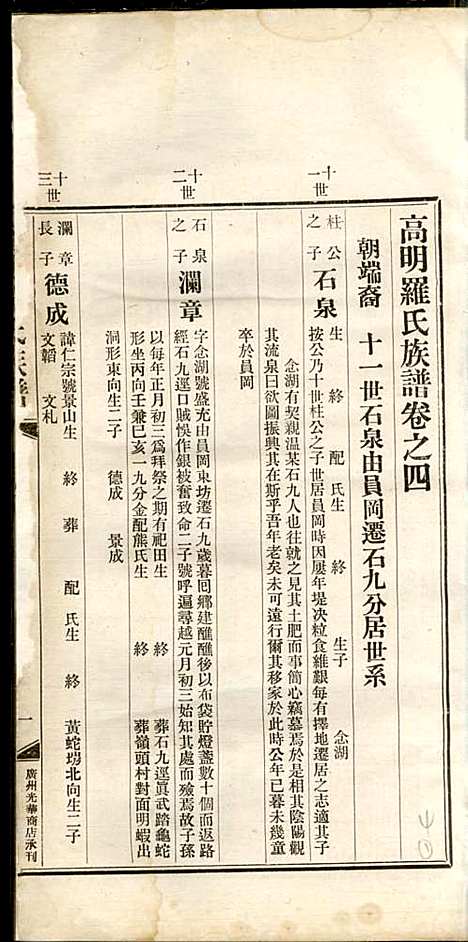 高明羅氏族譜卷之四
朝端裔　十一世石泉由員岡遷石九分居世系
十一世
桂公之子
石泉
生　終　配　氏生　終　生子　念湖
按公乃十世桂公之子世居員岡時因屢年堤决粒食維艱每有擇地遷居之志適其子
念湖有契親溫某石九人也往就之見其土肥而事簡心竊慕焉於是相其陰陽觀
其流泉曰欲圖振興其在斯乎吾年老矣未可遠行爾其移家於此時公年已暮未幾童
卒於員岡
十二世
石泉之子
瀾章
字念湖號盛充由員岡東坊遷石九歲暮囘鄉建醮醮後以布袋貯燈盞數十個而返路
經石九逕口賊悞作銀被奮致命二子號呼遍尋越元月初三始知其處而殮焉故子孫
以每年正月初三爲拜祭之期有祀田生　終　葬石九逕眞武踏龜蛇
形坐丙向壬兼巳亥一九分金配熊氏生　終　葬嶺頭村對面明蝦出
洞形東向生二子　德成　景成
十三世
瀾章長子
德成
諱仁宗號景山生　終　葬　配　氏生　終　黃蛇塱北向生二子
文韜　文札
氏族譜
一
廣州光華商店承刊